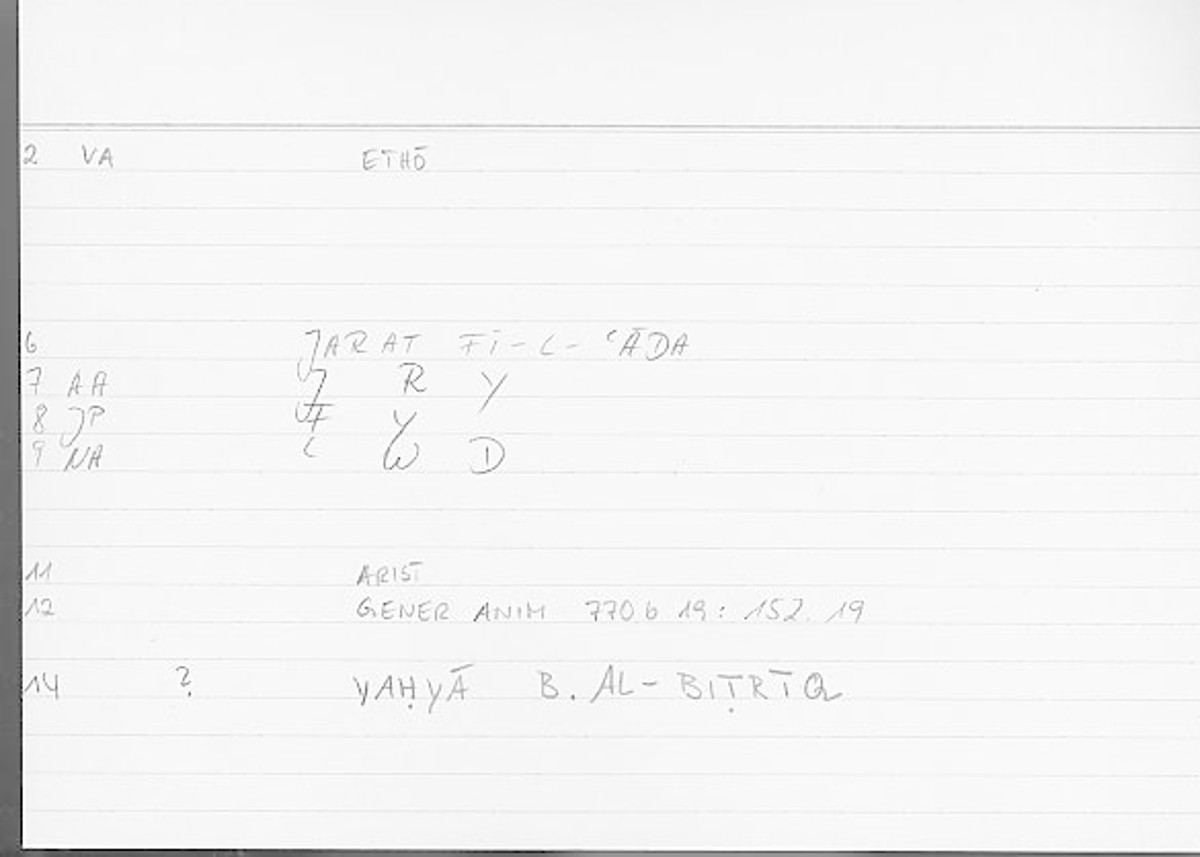 2 VA ETHŌ
6 JARAT FĪ-L-ʿĀDA
7 AA J R Y
8 JP F Y
9 NA ʿ W D
11 ARIST
12 GENER ANIM 770 b 19: 152. 19
14 ? YAḤYĀ B. AL-BIṬRĪQ